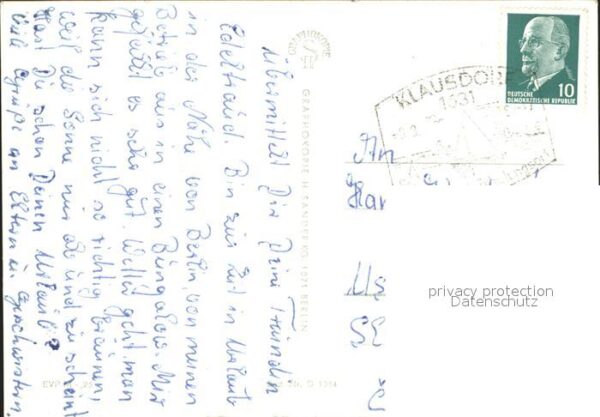 übermittelt Dir Deine Freundin
Edeltraud. Bin zur Zeit in Urlaub
in der Nähe von Berlin, von meinen
Betrieb aus in einen Bungalow. Mir
gefällt es sehr gut. Weil geht man
kann sich nicht so richtig bräunen,
weil die Sonne nur ab und zu scheint
Hast Du schon Deinen Urlaub?
viele Grüße an Eltern u. Geschwistern
GRAPHOKOPIE
GRAPHOKOPIE H. SANDBERG 1071 BERLIN
KLAUSDORF
1631
10
DEUTSCHE
DEMOKRATISCHE REPUBLIK
An
privacy protection
Datenschutz